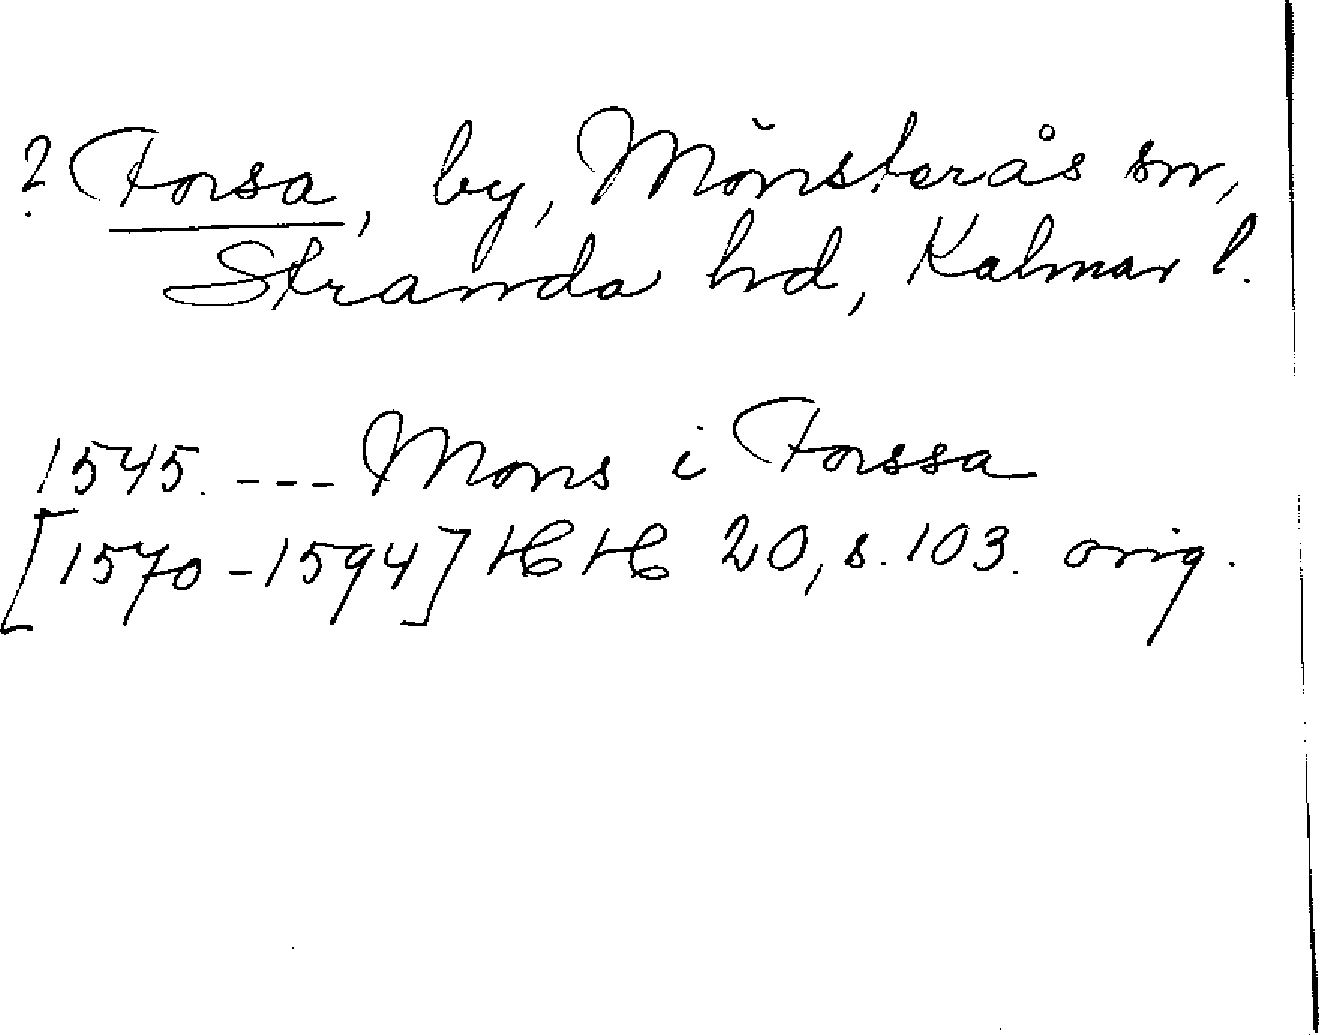 ? Forsa, by, Mönsterås sn,
Stranda hd, Kalmar l.
1545. --- Mons i Forssa
[1570-1594] HH 20, s. 103. orig.